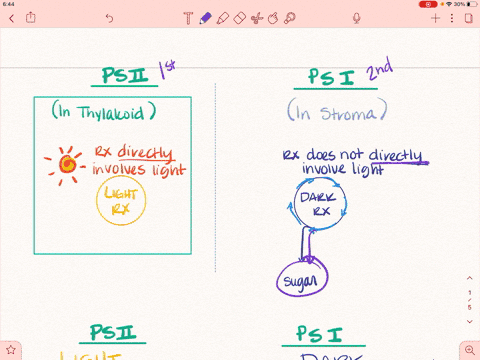 6:44
30%
PSII 1st
(In Thylakoid)
Rx directly
involves light
LIGHT
RX
PS I 2nd
(In Stroma)
Rx does not directly
involve light
DARK
RX
sugar
1
5
PSII
LIGHT
PS I
DARK